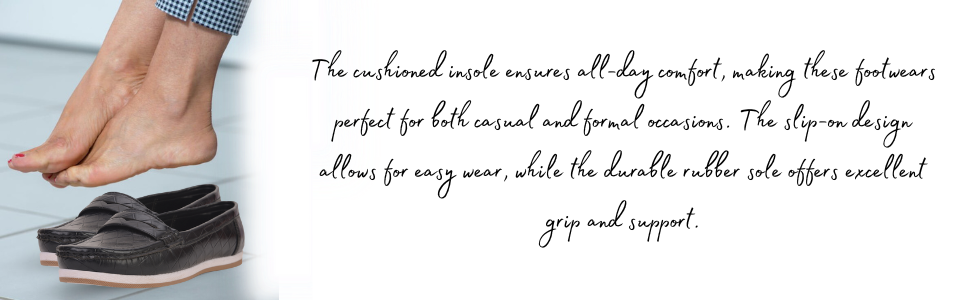 The cushioned insole ensures all-day comfort, making these footwears
perfect for both casual and formal occasions. The slip-on design
allows for easy wear, while the durable rubber sole offers excellent
grip and support.